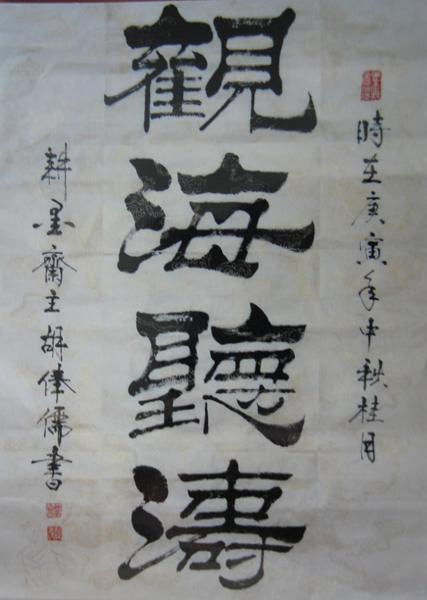 時在庚寅年中秋桂月
觀海聽濤
耕墨齋主胡俸儒書